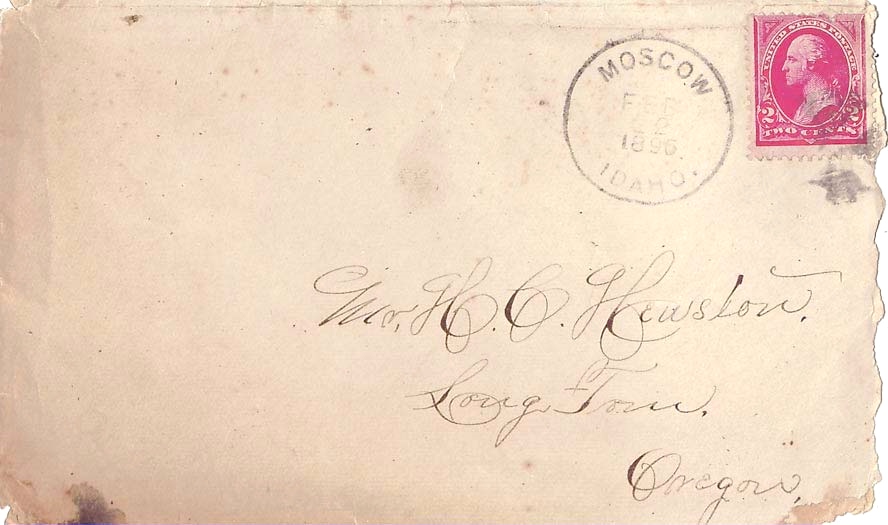 MOSCOW
FEB
1896.
IDAHO.
UNITED STATES POSTAGE
2 2
TWO CENTS
Mr. H. C. Hewston.
Long Tom.
Oregon.